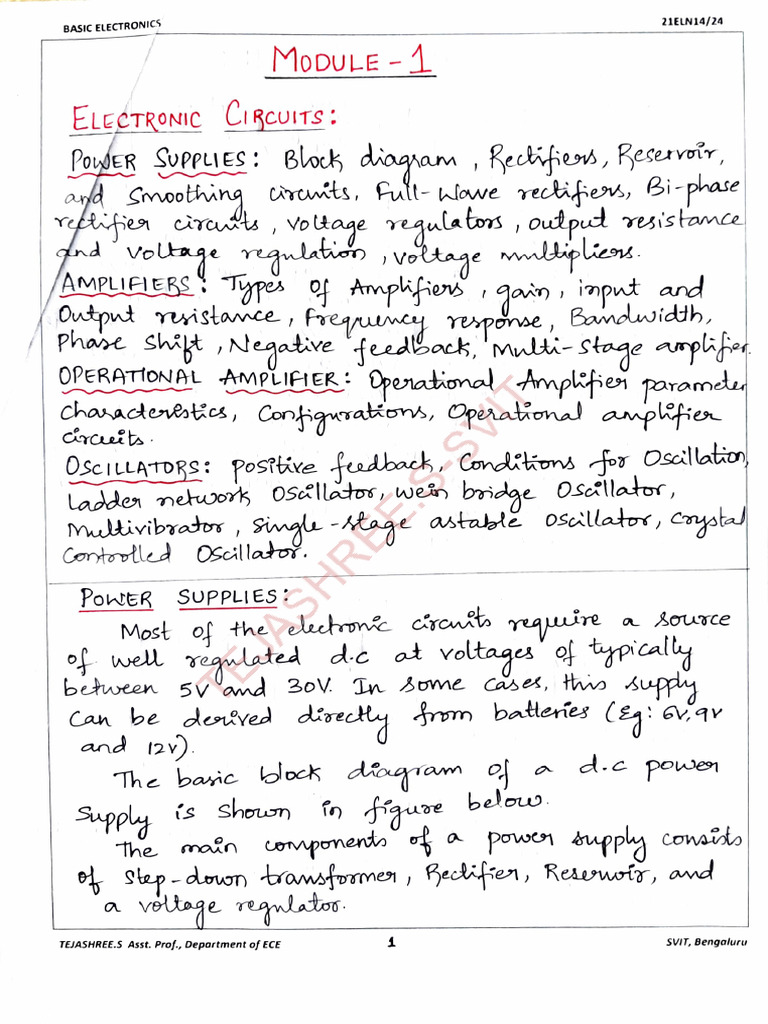 BASIC ELECTRONICS 21ELN14/24
MODULE - 1
ELECTRONIC CIRCUITS:
POWER SUPPLIES: Block diagram, Rectifiers, Reservoir,
and Smoothing circuits, Full-Wave rectifiers, Bi-phase
rectifier circuits, voltage regulators, output resistance
and voltage regulation, voltage multipliers.
AMPLIFIERS: Types of Amplifiers, gain, input and
Output resistance, Frequency response, Bandwidth,
Phase Shift, Negative feedback, Multi-Stage amplifier.
OPERATIONAL AMPLIFIER: Operational Amplifier parameter
Characteristics, Configurations, Operational amplifier
circuits.
OSCILLATORS: Positive feedback, Conditions for Oscillation,
Ladder network Oscillator, wein bridge Oscillator,
Multivibrator, Single-stage astable oscillator, Crystal
Controlled Oscillator.
POWER SUPPLIES:
Most of the electronic circuits require a source
of well regulated d.c at voltages of typically
between 5V and 30V. In some cases, this supply
can be derived directly from batteries (Eg: 6V, 9V
and 12V).
The basic block diagram of a d.c power
supply is shown in figure below.
The main components of a power supply consists
of step-down transformer, Rectifier, Reservoir, and
a voltage regulator.
TEJASHREE.S-SVIT
TEJASHREE.S Asst. Prof., Department of ECE 1 SVIT, Bengaluru